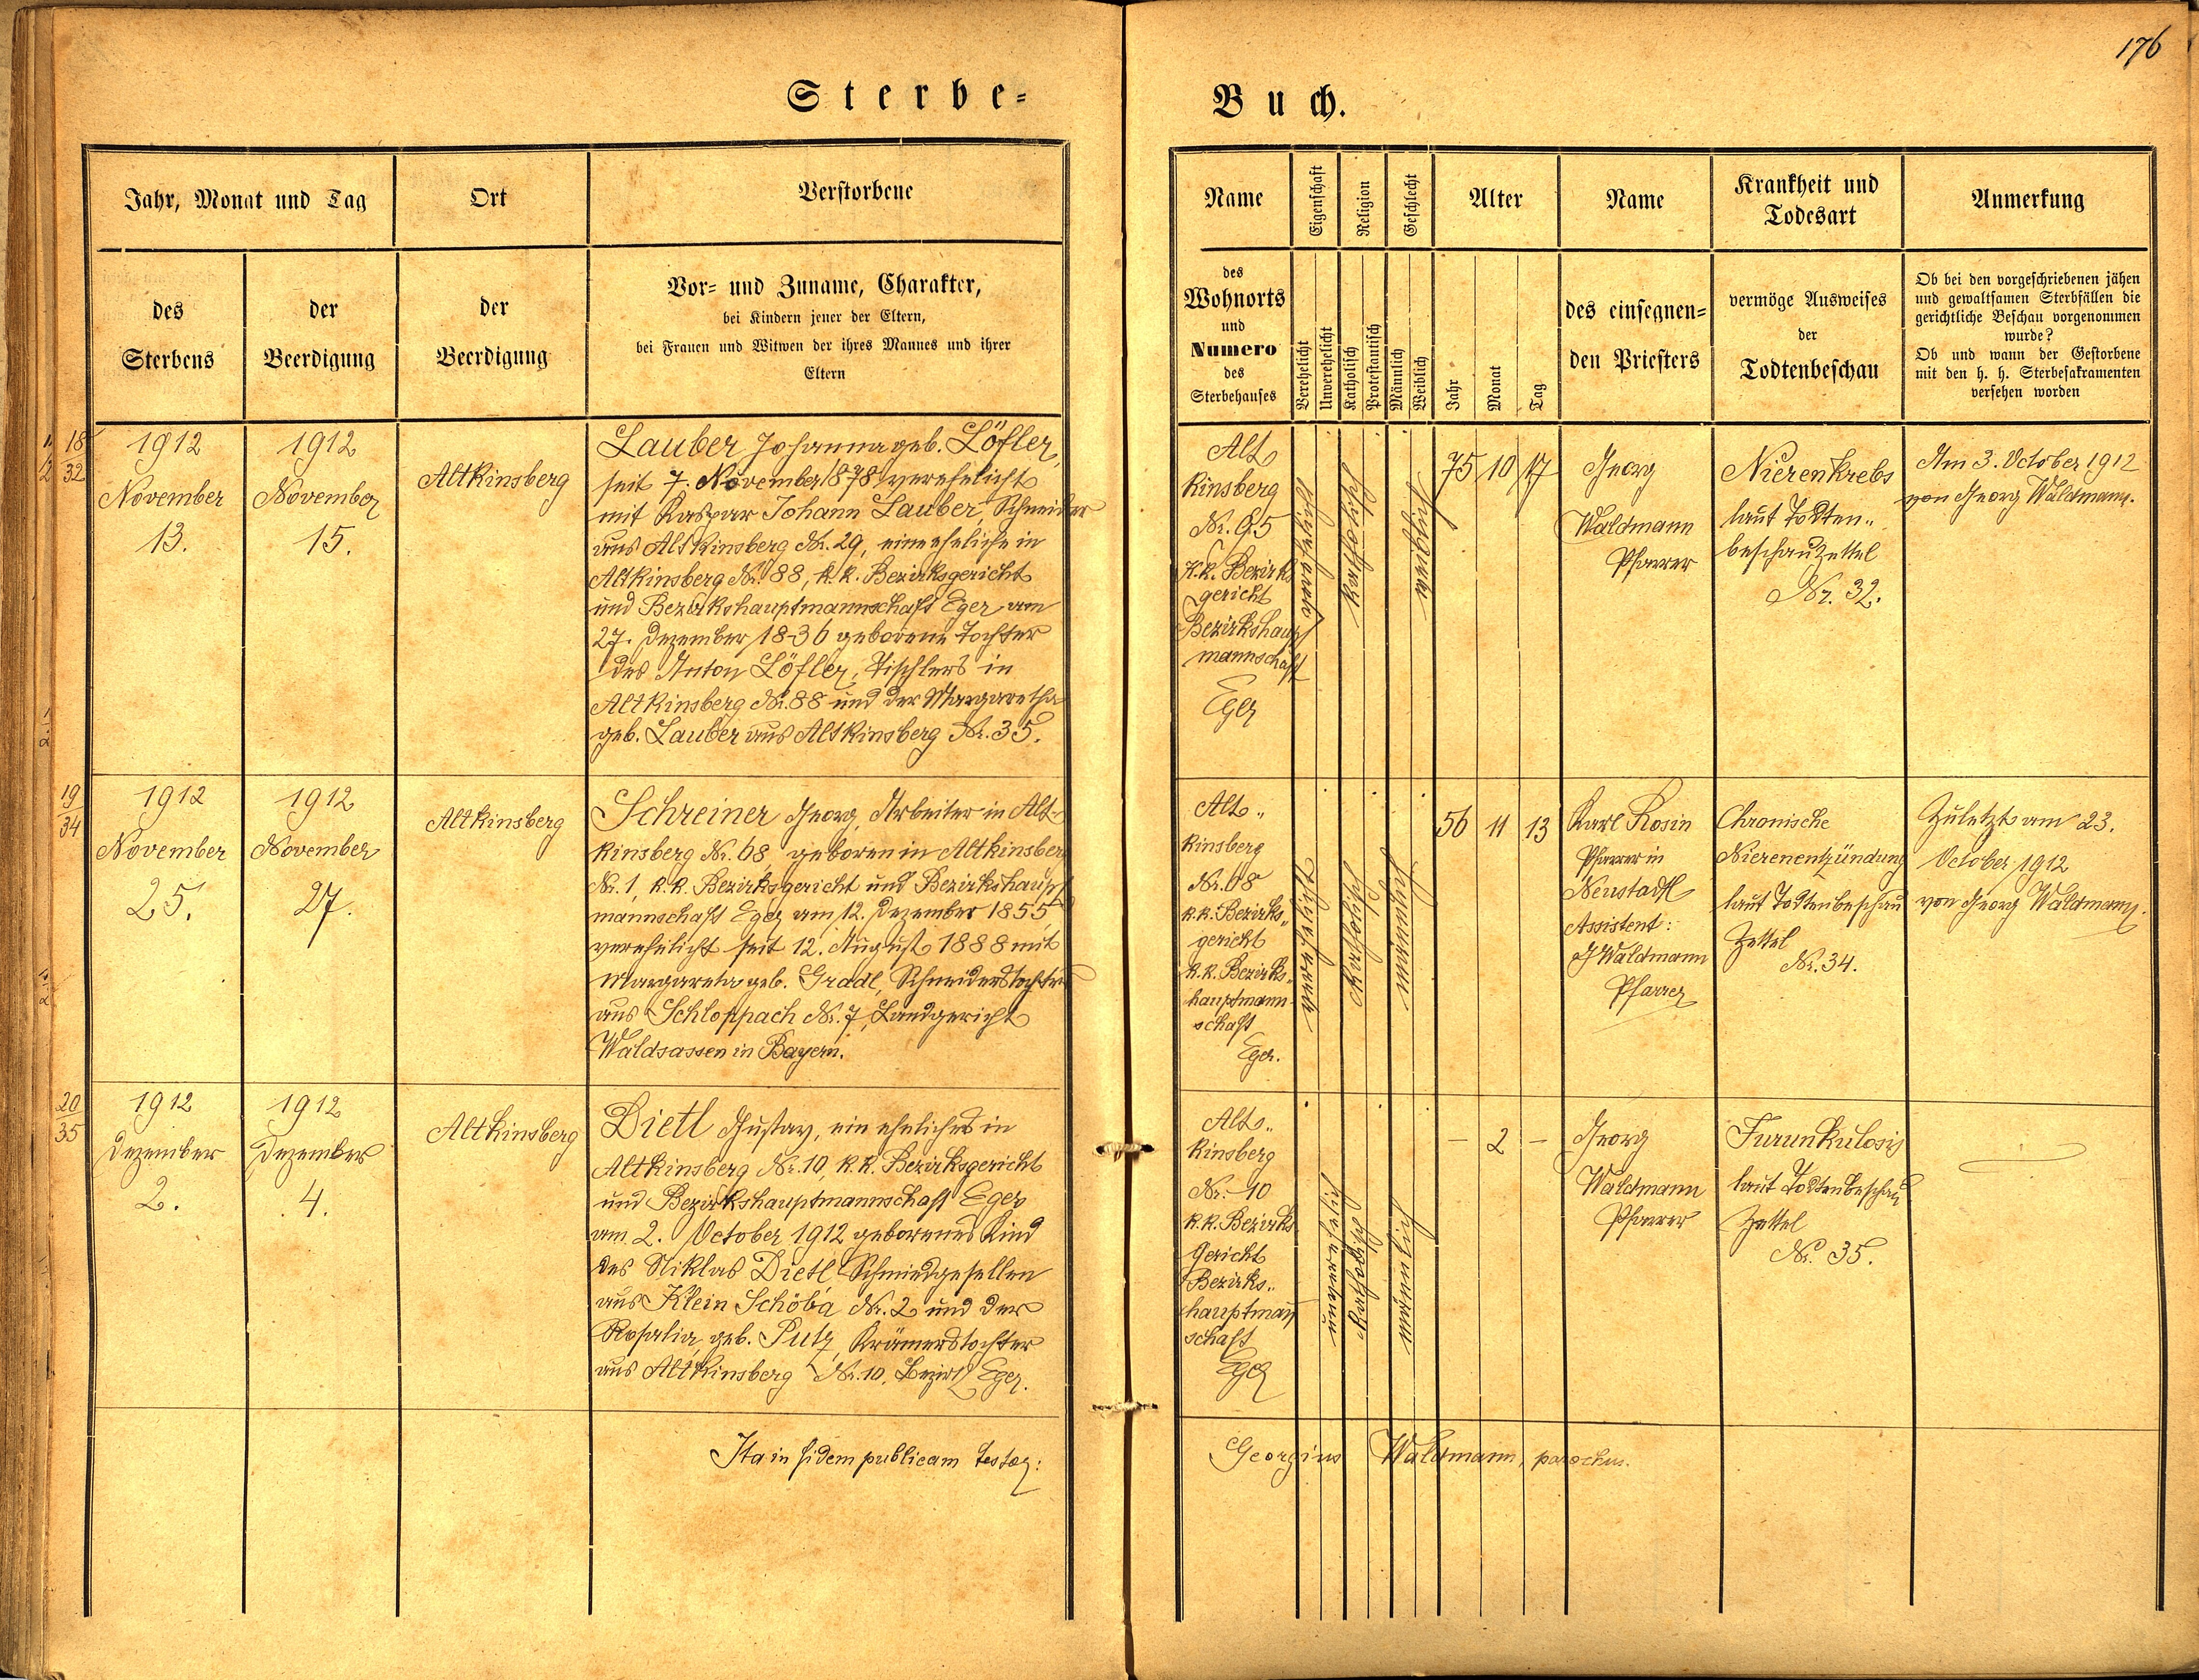 176
Sterbe-
Buch.
Jahr, Monat und Tag
Ort
Verstorbene
des
Sterbens
der
Beerdigung
der
Beerdigung
Vor- und Zuname, Charakter,
bei Kindern jener der Eltern,
bei Frauen und Witwen der ihres Mannes und ihrer
Eltern
Name
Eigenschaft
Religion
Geschlecht
Alter
Name
Krankheit und
Todesart
Anmerkung
des
Wohnorts
und
Numero
des
Sterbehauses
Verehelicht
Unverehelicht
Katholisch
Protestantisch
Männlich
Weiblich
Jahr
Monat
Tag
des einsegnen=
den Priesters
vermöge Ausweises
der
Todtenbeschau
Ob bei den vorgeschriebenen jähen
und gewaltsamen Sterbfällen die
gerichtliche Beschau vorgenommen
wurde?
Ob und wann der Gestorbene
mit den h. h. Sterbesakramenten
versehen worden
18
32
1912
November
13.
1912
November
15.
Altkinsberg
Lauber Johanna geb. Löfler,
seit 7. November 1878 verehelicht
mit Kaspar Johann Lauber, Schneider
aus Altkinsberg Nr. 29, eine eheliche in
Altkinsberg Nr. 88, k.k. Bezirksgericht
und Bezirkshauptmannschaft Eger am
27. Dezember 1836 geborene Tochter
des Anton Löfler, Tischlers in
Altkinsberg Nr. 88 und der Margaretha
geb. Lauber aus Altkinsberg Nr. 35.
Alt
kinsberg
k.k. Bezirks
gericht
Bezirkshaupt
mannschaft
Eger
verehelicht
katholisch
weiblich
75 10 17
Georg
Waldmann
Pfarrer
Nierenkrebs
laut Todten„
beschauzettel
Nr. 32.
Am 3. October 1912
von Georg Waldmann.
19
34
1912
November
25.
1912
November
27.
Altkinsberg
Schreiner Georg, Arbeiter in Alt-
kinsberg Nr. 68, geboren in Altkinsberg
Nr. 1, k.k. Bezirksgericht und Bezirkshaupt
mannschaft Eger am 12. Dezember 1855
verehelicht seit 12. August 1888 mit
Margareta geb. Gradl, Schneiderstochter
aus Schloppach Nr. 7, Landgericht
Waldsassen in Bayern.
Alt„
kinsberg
Nr. 68
k.k. Bezirks„
gericht
k.k. Bezirks„
hauptmann-
schaft
Eger.
verehelicht
katholisch
männlich
56 11 13
Karl Rosin
Pfarrer in
Neustadtl
Assistent:
G Waldmann
Pfarrer
Chronische
Nierenentzündung
laut Todtenbeschau
Zettel
Nr. 34.
Zuletzt am 23.
October 1912
von Georg Waldmann.
20
35
1912
Dezember
2.
1912
Dezember
4.
Altkinsberg
Dietl Gustav, ein eheliches in
Altkinsberg Nr. 10, k.k. Bezirksgericht
und Bezirkshauptmannschaft Eger
am 2. October 1912 geborenes Kind
des Niklas Dietl Schmiedgesellen
aus Klein Schöba Nr. 2 und der
Rosalia, geb. Putz, Krämerstochter
aus Altkinsberg Nr. 10, Bezirk Eger.
Alt„
kinsberg
Nr. 10
k.k. Bezirks
Gericht
Bezirks„
hauptman̄
schaft
Eger
unverehelich
katholisch
männlich
– 2 –
Georg
Waldmann
Pfarrer
Furunkulosis
laut Todtenbeschau
Zettel
Nr. 35.
Ita in fidem publicam testor:
Georgius Waldmann, parochus.